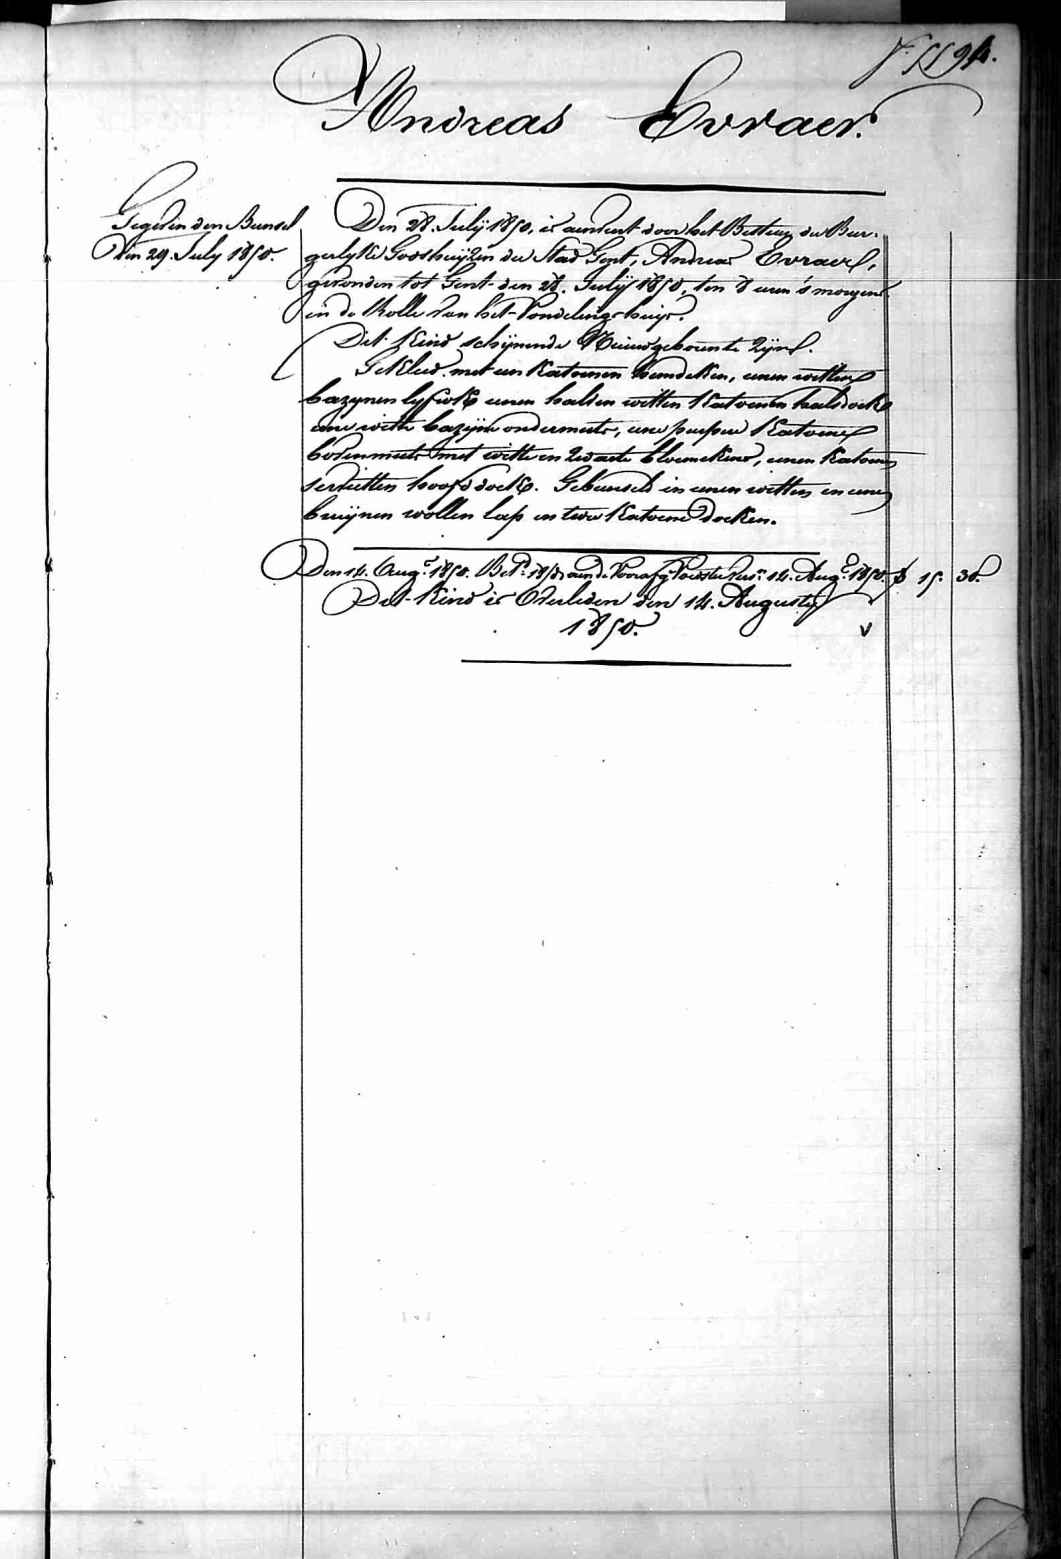 Andreas Evraer.
Gegeven den Bunsel
Den 29. July 1850.
Den 28. Julij 1850, is aenveirt door het Bestuer der Bur-
gerlyke Godshuijzen der Stad Gent, Andreas Evraer,
gevonden tot Gent den 28. Julij 1850, ten 8 uren 's morgens
in de Rolle van het Vondelingshuijs.
Dit Kind schijnende Nieuwgeboren te Zijn.
Gekleed met een Katoenen hemdeken, eenen witten
bazynen lyfrok, eenen halven witten Katoenen halsdoek
eene witte bazijne ondermuts, eene purper Katoene
bovenmuts met witte en Zwarte bloemekens, eenen Katoenen
servietten hoofddoek. Gebunseld in eenen witten en eenen
bruijnen wollen lap en twee Katoene doeken.
Den 14. Augt. 1850. aan de Voedster 14. Augt. 1850. 15. 36.
Dit Kind is Overleden den 14. Augusty
1850.